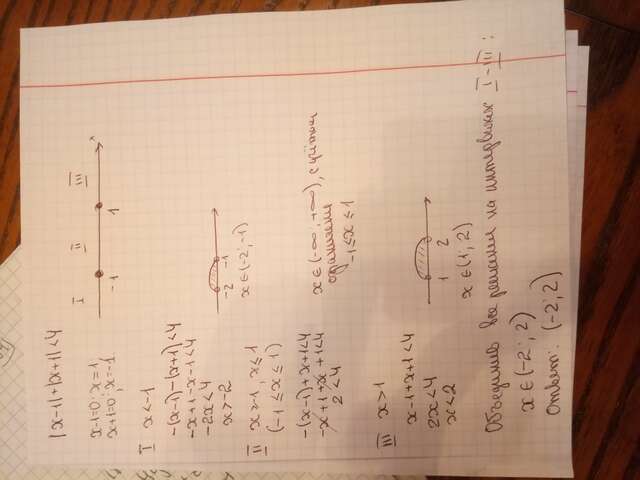 |x-1|+|x+1|<4
x-1=0; x=1
x+1=0; x=-1
I II III
-1 1 x
I x<-1
-(x-1)-(x+1)<4
-x+1-x-1<4
-2x<4
x>-2
-2 -1
x∈(-2;-1)
II x≥-1; x≤1
(-1≤x≤1)
-(x-1)+x+1<4
-x+1+x+1<4
2<4
x∈(-∞;+∞), с учётом
-1≤x≤1
III x>1
x-1+x+1<4
2x<4
x<2
1 2
x∈(1;2)
Объединив все решения на интервалах I-III:
x∈(-2;2)
Ответ: (-2;2)